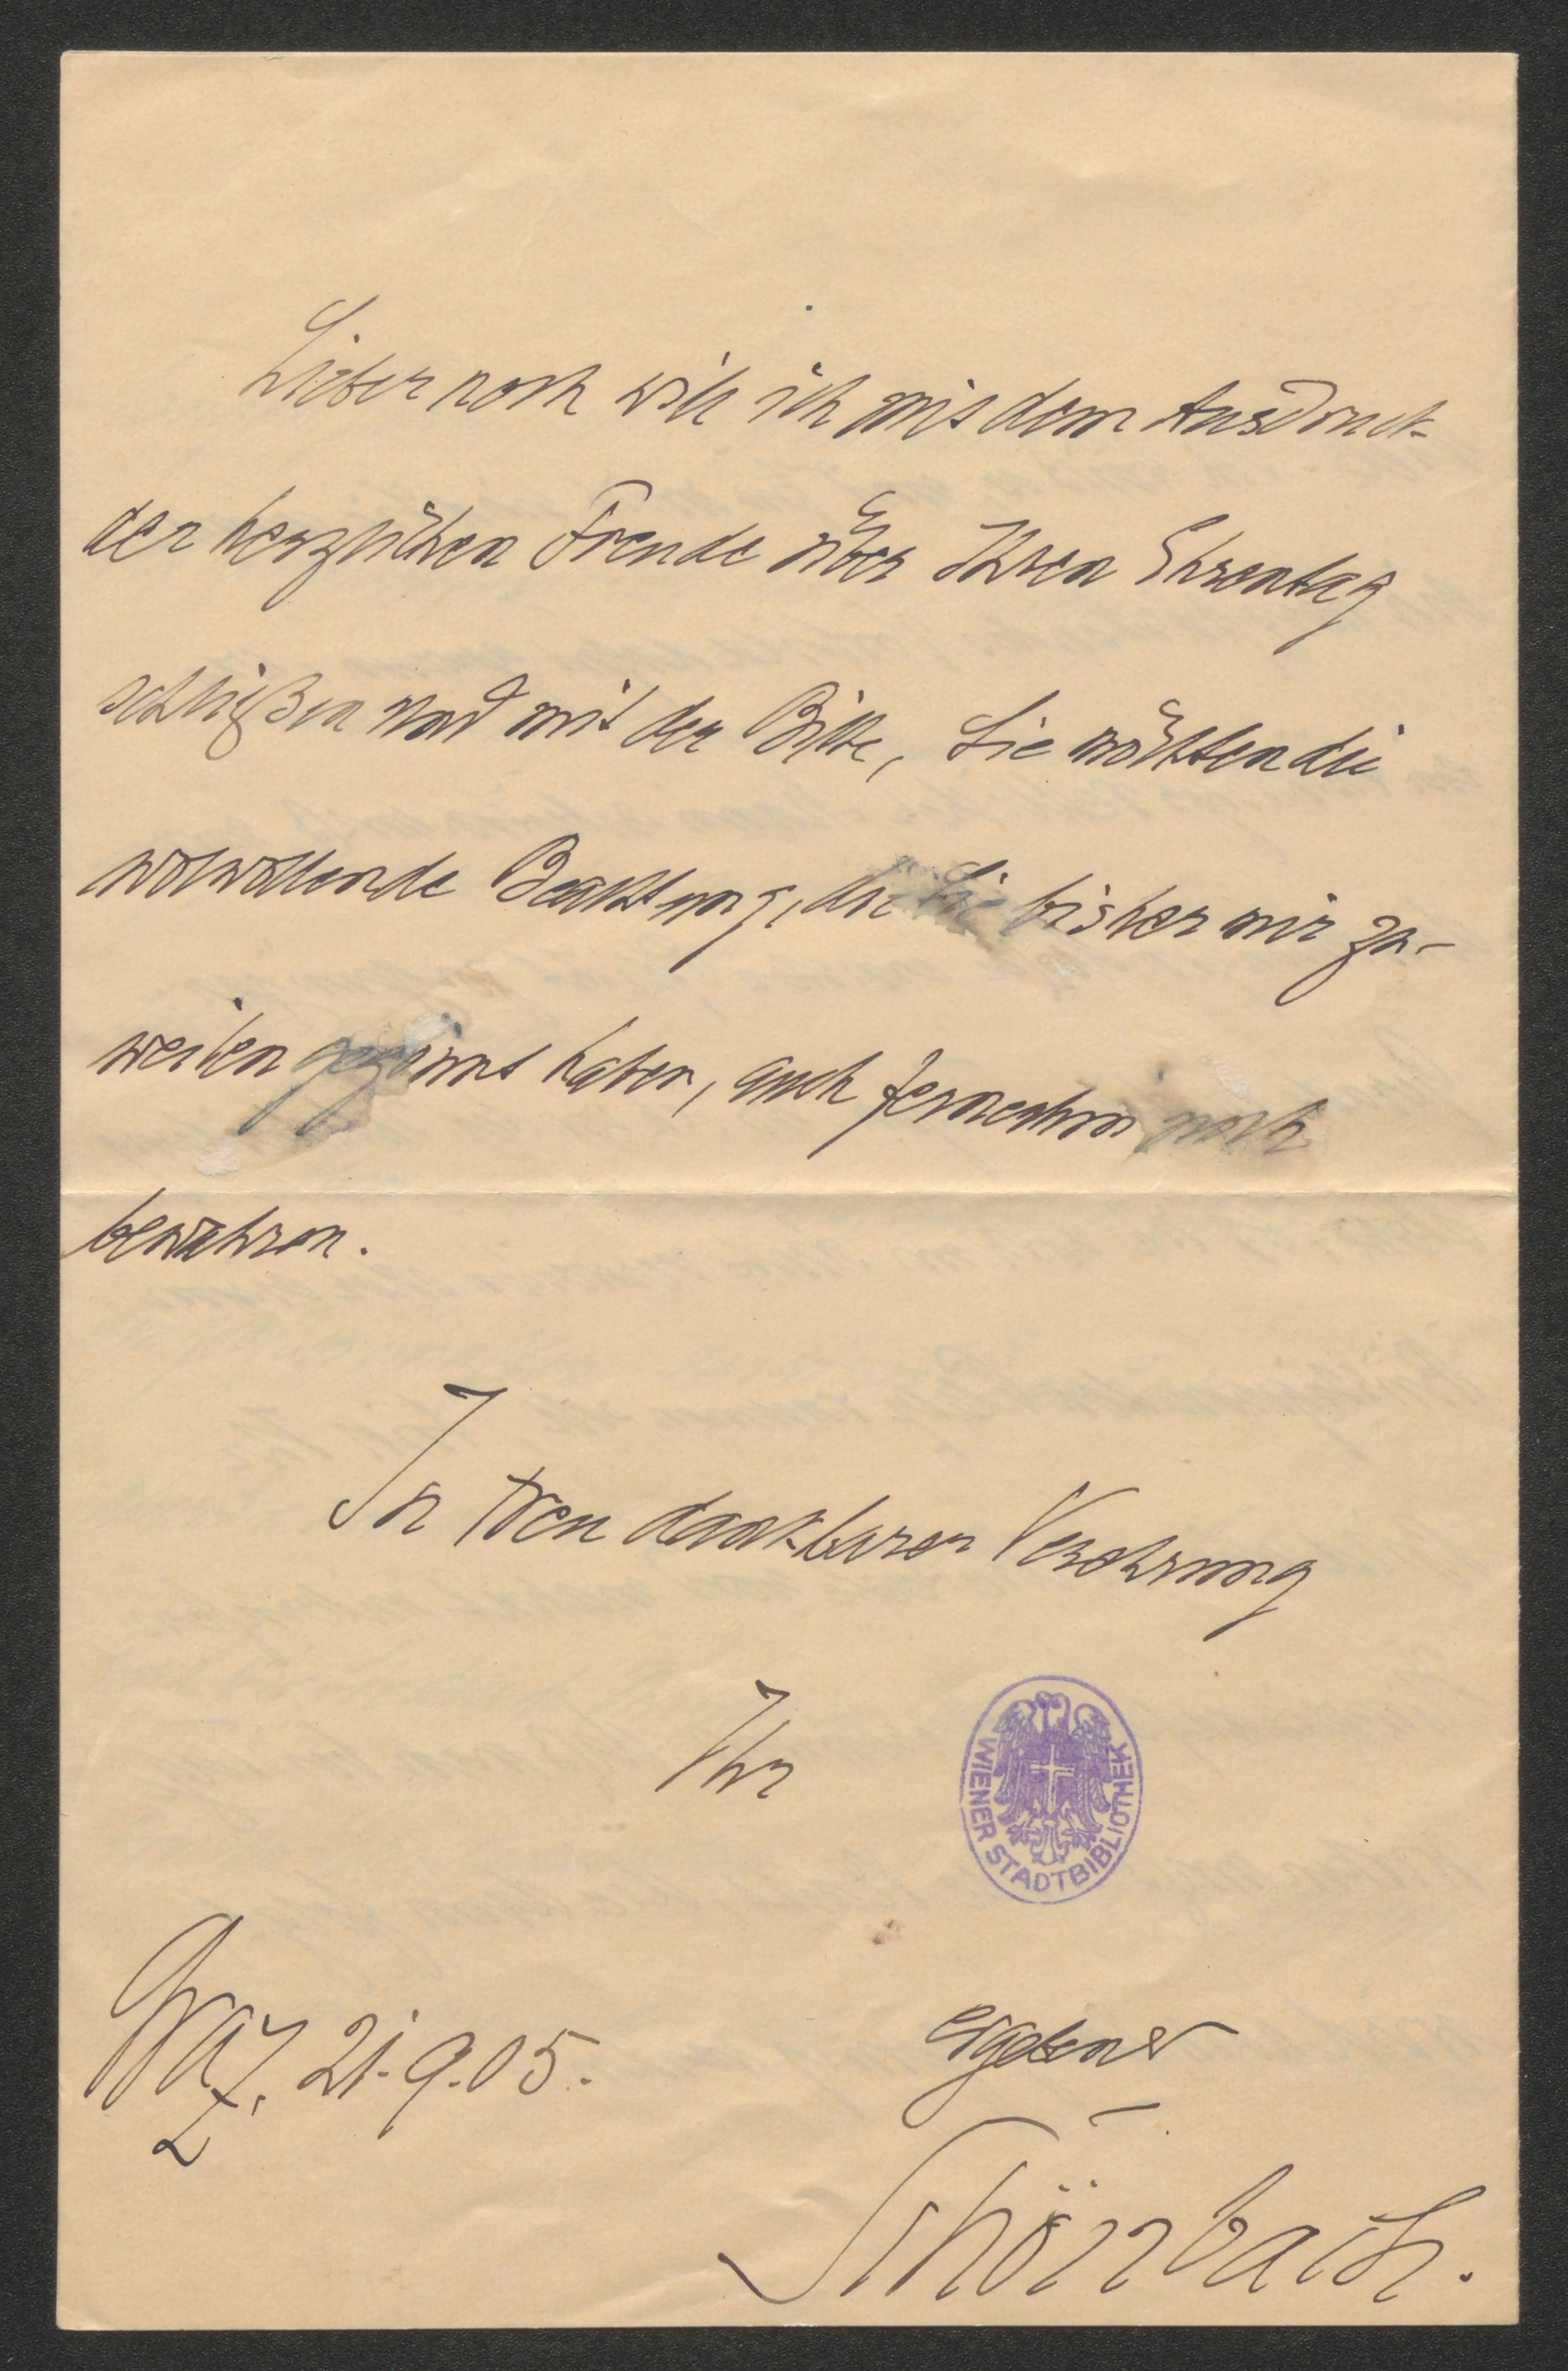 Lieber noch will ich mit dem Ausdruck
der herzlichen Freude über Ihren Ehrentag
schließen und mit der Bitte, Sie möchten die
wolwollende Beachtung, die Sie bisher mir zu-
weilen gegönnt haben, auch fernerhin noch
bewahren.
In treu dankbarer Verehrung
Ihr
WIENER STADTBIBLIOTHEK
Graz, 21.9.05.
ergebener
Schönbach.